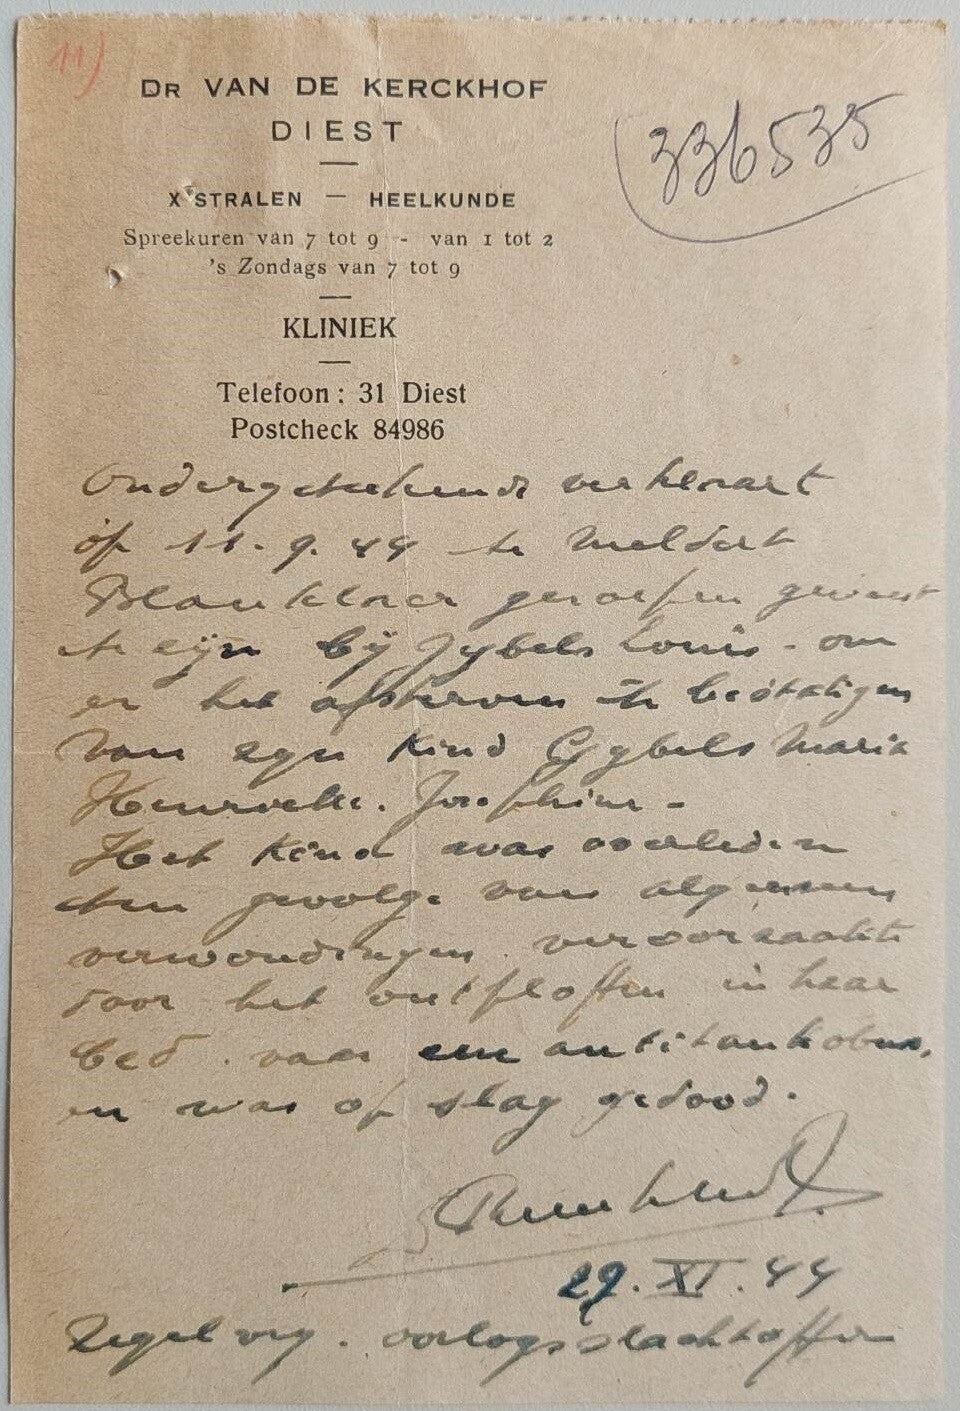 11)
DR VAN DE KERCKHOF
DIEST
336535
X STRALEN — HEELKUNDE
Spreekuren van 7 tot 9 - van 1 tot 2
's Zondags van 7 tot 9
KLINIEK
Telefoon : 31 Diest
Postcheck 84986
Ondergeteekende verklaart
op 11.9.44 te Meldert
Blanklaer geroepen geweest
te zijn bij Gybels Louis - om
er het afsterven te bestatigen
van zyn kind Gybels Maria
Josephine -
Het kind was overleden
ten gevolge van algemene
verwondingen veroorzaakt
door het ontploffen in haar
bed van een antitankobus,
en was op slag gedood.
29.XI.44
Zegelvry. oorlogsslachtoffer